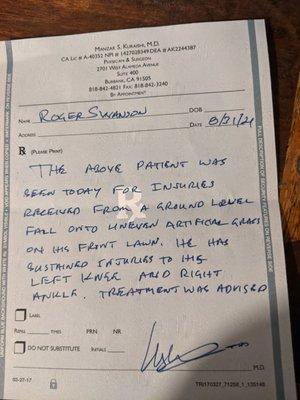 MANZAR S. KURAISHI, M.D.
CA Lic # A-40352 NPI # 1427028349 DEA # AK2244387
PHYSICIAN & SURGEON
2701 WEST ALAMEDA AVENUE
SUITE 400
BURBANK, CA 91505
818-842-4821 FAX: 818-842-3240
BY APPOINTMENT
NAME ROGER SWANSON DOB
ADDRESS DATE 8/31/21
Rx (PLEASE PRINT)
THE ABOVE PATIENT WAS
SEEN TODAY FOR INJURIES
RECEIVED FROM A GROUND LEVEL
FALL ONTO UNEVEN ARTIFICIAL GRASS
ON HIS FRONT LAWN. HE HAS
SUSTAINED INJURIES TO HIS
LEFT KNEE AND RIGHT
ANKLE. TREATMENT WAS ADVISED
LABEL
REFILL TIMES PRN NR
DO NOT SUBSTITUTE INITIALS
M.D.
03-27-17